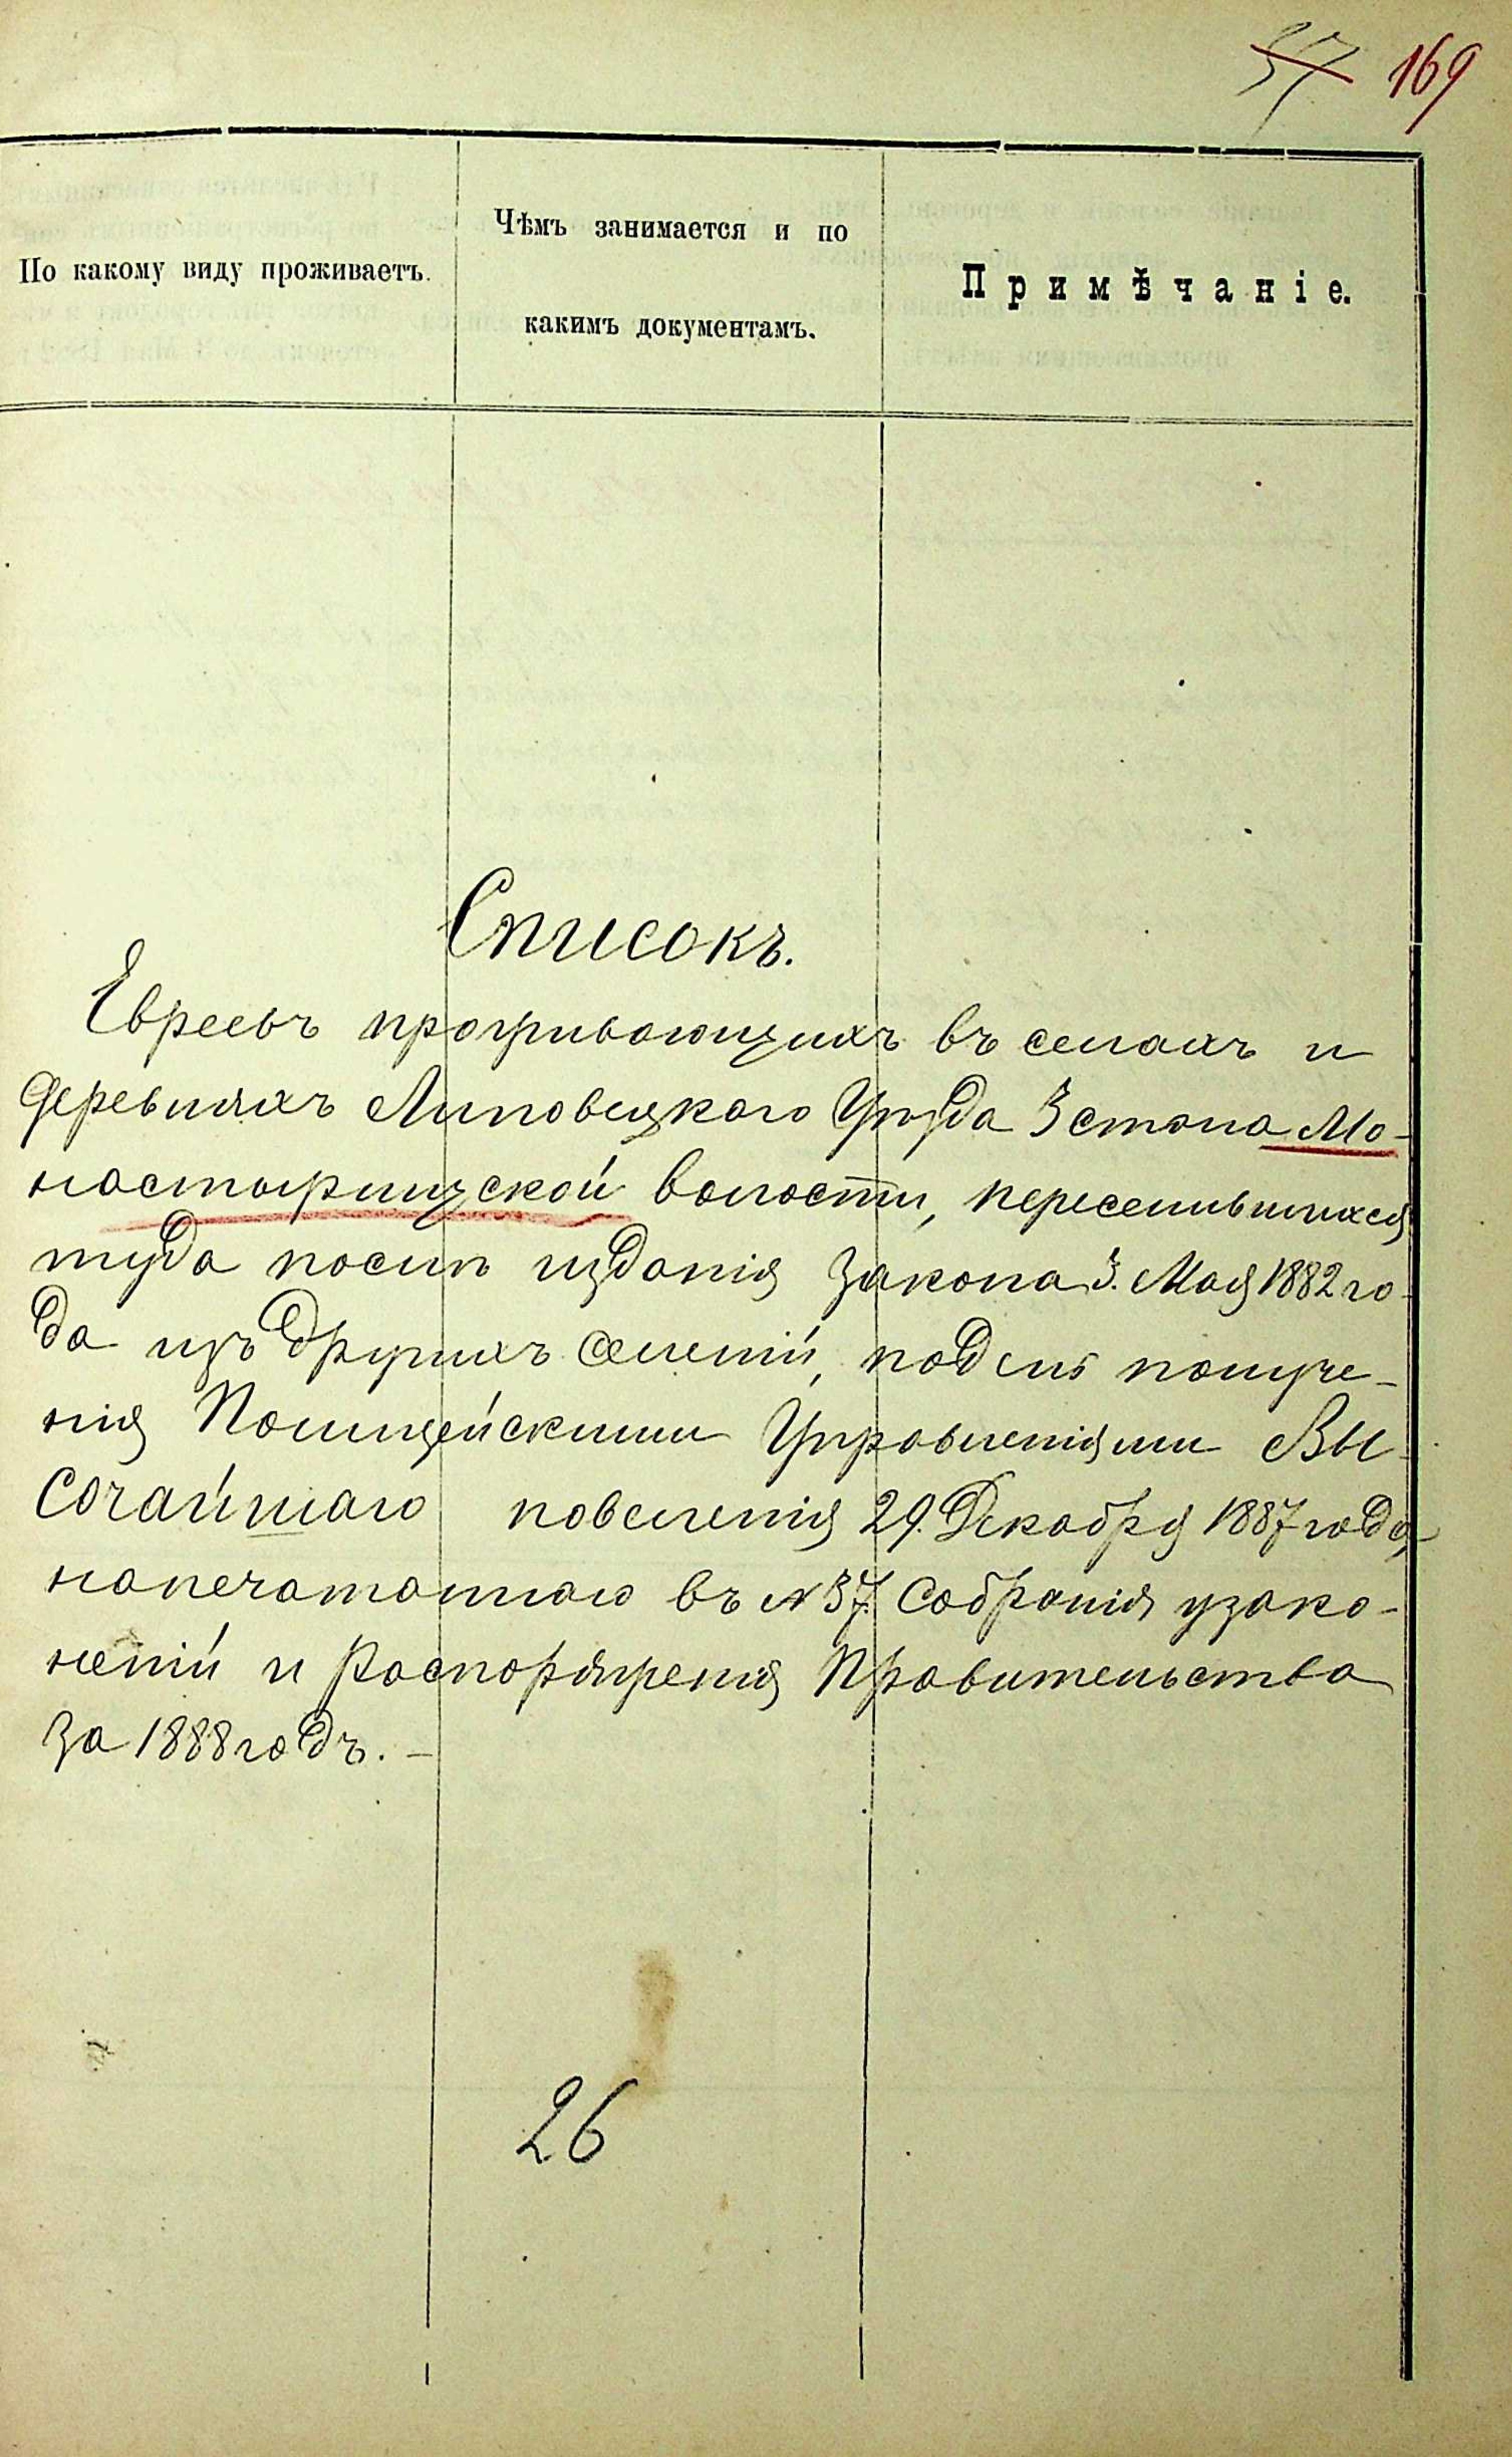 57 169
По какому виду проживаетъ.
Чѣмъ занимается и по
какимъ документамъ.
Примѣчаніе.
Списокъ.
Евреевъ проживающихъ въ селахъ и
деревняхъ Липовецкаго Уѣзда 3 стана Мо-
настырищской волости, переселившихся
туда послѣ изданія Закона 3. Мая 1882 го-
да изъ другихъ селеній, по день получе-
нія Полицейскими Управленіями Вы-
сочайшаго повеленія 29. Декабря 1887 года,
напечатаннаго въ № 37. Собранія узако-
неній и Распоряженія Правительства
за 1888 годъ. —
26